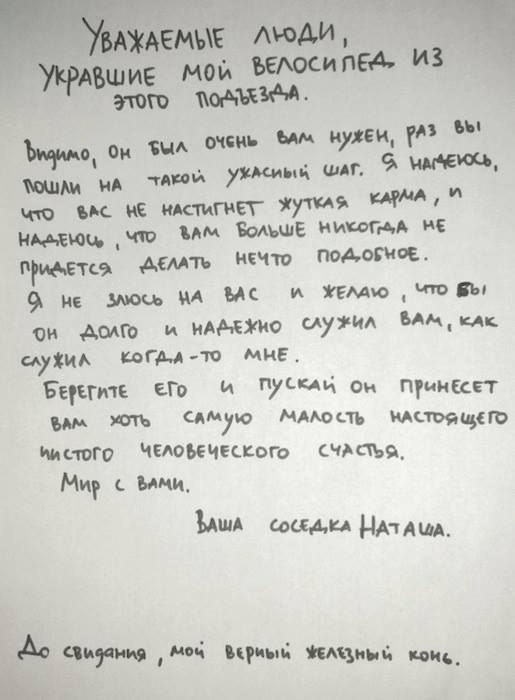 Уважаемые люди,
укравшие мой велосипед из
этого подъезда.
Видимо, он был очень вам нужен, раз вы
пошли на такой ужасный шаг. Я надеюсь,
что вас не настигнет жуткая карма, и
надеюсь, что вам больше никогда не
придется делать нечто подобное.
Я не злюсь на вас и желаю, что бы
он долго и надежно служил вам, как
служил когда-то мне.
Берегите его и пускай он принесет
вам хоть самую малость настоящего
чистого человеческого счастья.
Мир с вами.
Ваша соседка Наташа.
До свидания, мой верный железный конь.